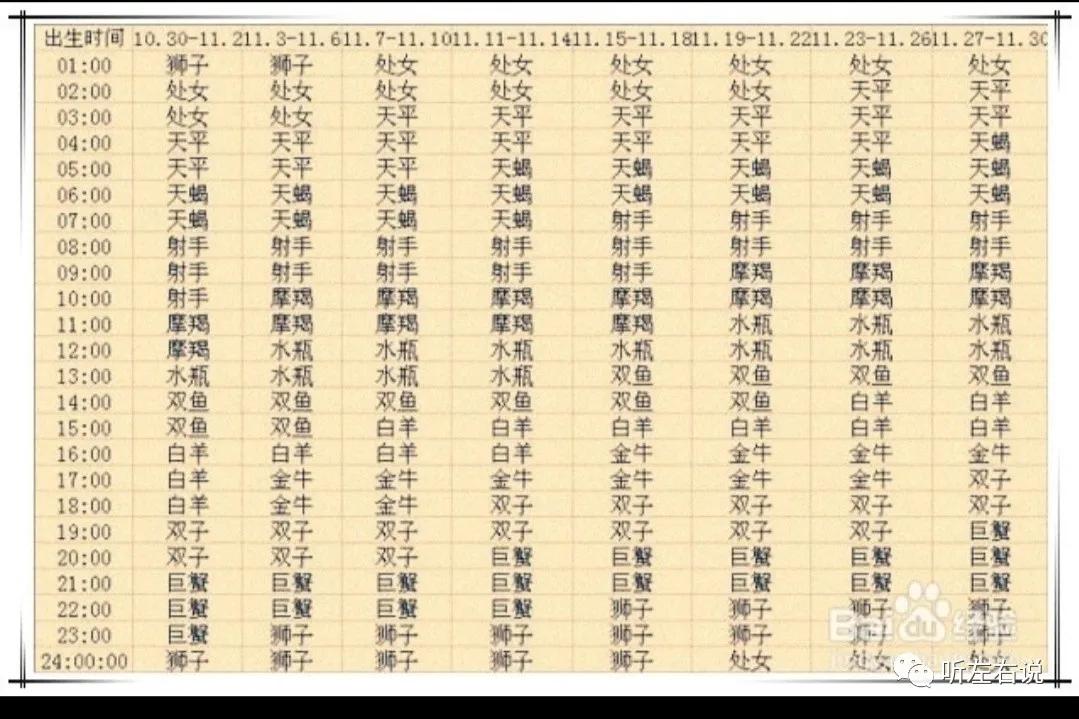 出生时间 10.30-11.2 11.3-11.6 11.7-11.10 11.11-11.14 11.15-11.18 11.19-11.22 11.23-11.26 11.27-11.30
01:00 狮子 狮子 处女 处女 处女 处女 处女 处女
02:00 处女 处女 处女 处女 处女 处女 天平 天平
03:00 处女 处女 天平 天平 天平 天平 天平 天平
04:00 天平 天平 天平 天平 天平 天平 天平 天蝎
05:00 天平 天平 天平 天蝎 天蝎 天蝎 天蝎 天蝎
06:00 天蝎 天蝎 天蝎 天蝎 天蝎 天蝎 天蝎 天蝎
07:00 天蝎 天蝎 天蝎 天蝎 射手 射手 射手 射手
08:00 射手 射手 射手 射手 射手 射手 射手 射手
09:00 射手 射手 射手 射手 射手 摩羯 摩羯 摩羯
10:00 射手 摩羯 摩羯 摩羯 摩羯 摩羯 摩羯 摩羯
11:00 摩羯 摩羯 摩羯 摩羯 摩羯 水瓶 水瓶 水瓶
12:00 摩羯 水瓶 水瓶 水瓶 水瓶 水瓶 水瓶 水瓶
13:00 水瓶 水瓶 水瓶 水瓶 双鱼 双鱼 双鱼 双鱼
14:00 双鱼 双鱼 双鱼 双鱼 双鱼 双鱼 白羊 白羊
15:00 双鱼 双鱼 白羊 白羊 白羊 白羊 白羊 白羊
16:00 白羊 白羊 白羊 白羊 金牛 金牛 金牛 金牛
17:00 白羊 金牛 金牛 金牛 金牛 金牛 金牛 双子
18:00 白羊 金牛 金牛 双子 双子 双子 双子 双子
19:00 双子 双子 双子 双子 双子 双子 双子 巨蟹
20:00 双子 双子 双子 巨蟹 巨蟹 巨蟹 巨蟹 巨蟹
21:00 巨蟹 巨蟹 巨蟹 巨蟹 巨蟹 巨蟹 巨蟹 巨蟹
22:00 巨蟹 巨蟹 巨蟹 巨蟹 狮子 狮子 狮子 狮子
23:00 巨蟹 狮子 狮子 狮子 狮子 狮子
Bai 经验
24:00:00 狮子 狮子 狮子 狮子 狮子 处女 处女 处女
听左右说